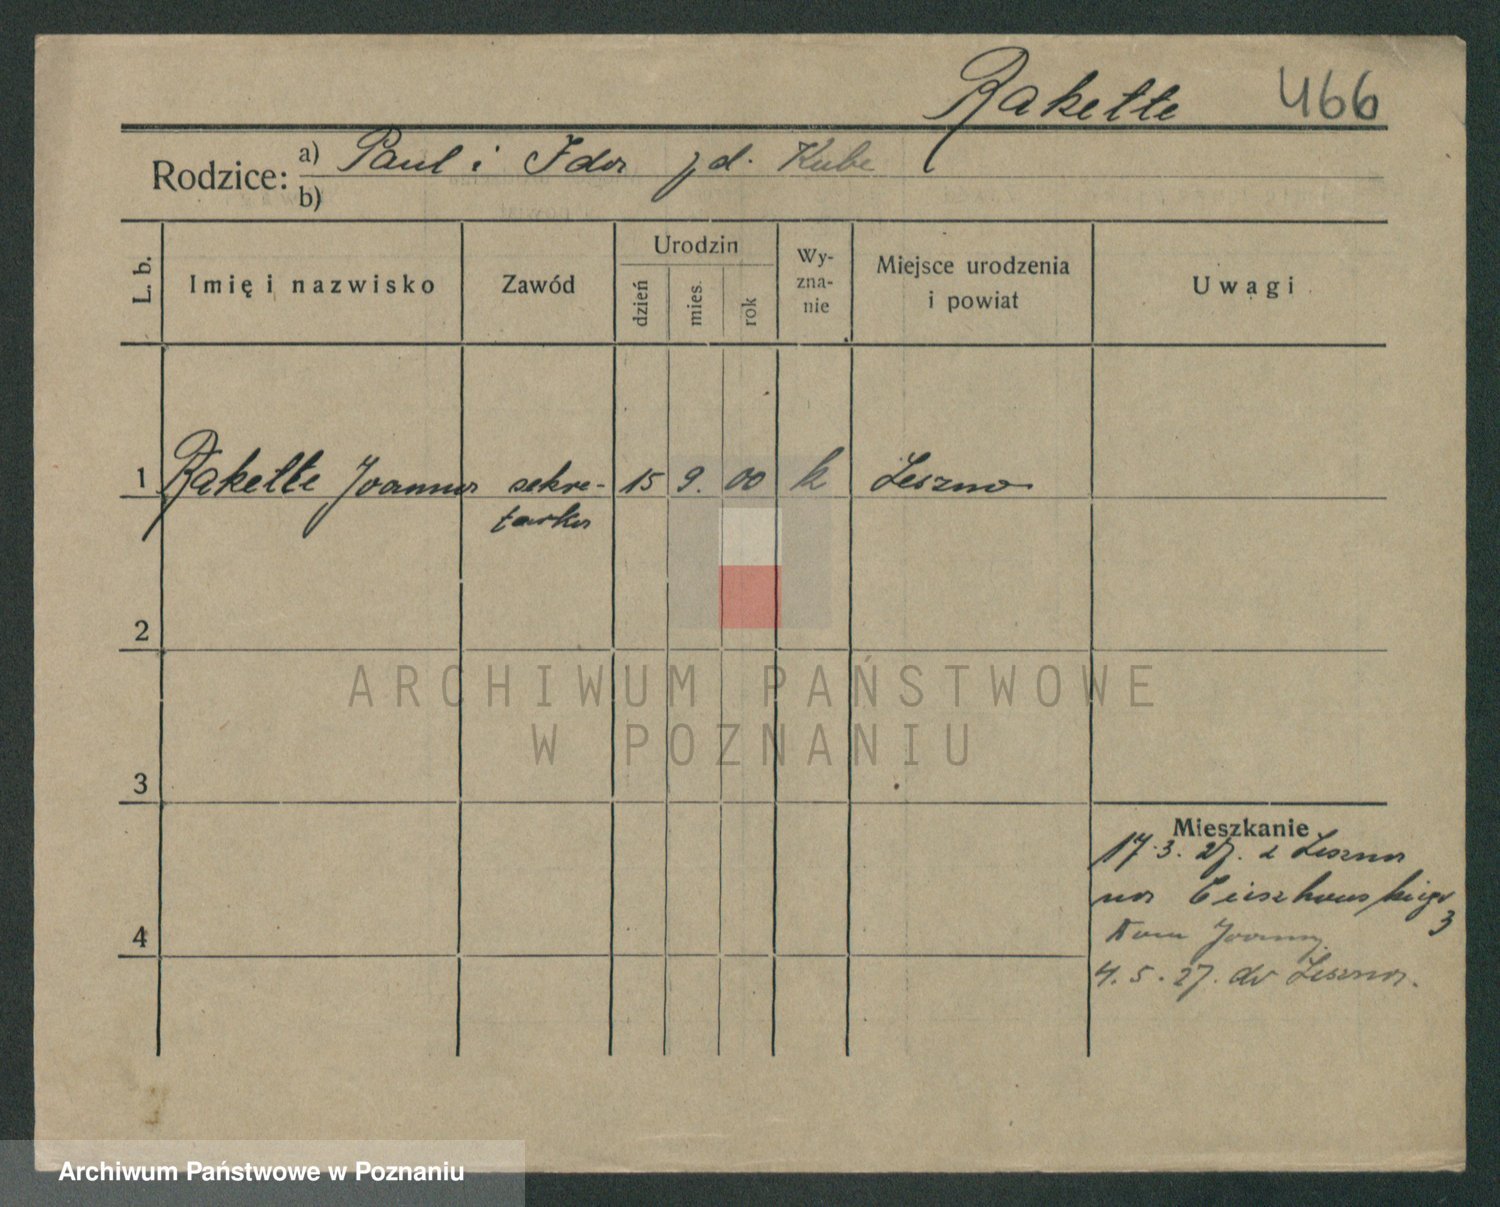 Rakette 466
Rodzice: a) Paul i Ida zd. Kube
b)
L. b. Imię i nazwisko Zawód Urodzin dzień mies. rok Wyznanie Miejsce urodzenia i powiat Uwagi
1 Rakette Joanna sekre- 15 9. 00 k Leszno
tarka
2
ARCHIWUM PAŃSTWOWE
W POZNANIU
3
Mieszkanie
17.3.27. z Leszna
na Cieszkowskiego
3
4
4.5.27. do Leszna.
Archiwum Państwowe w Poznaniu